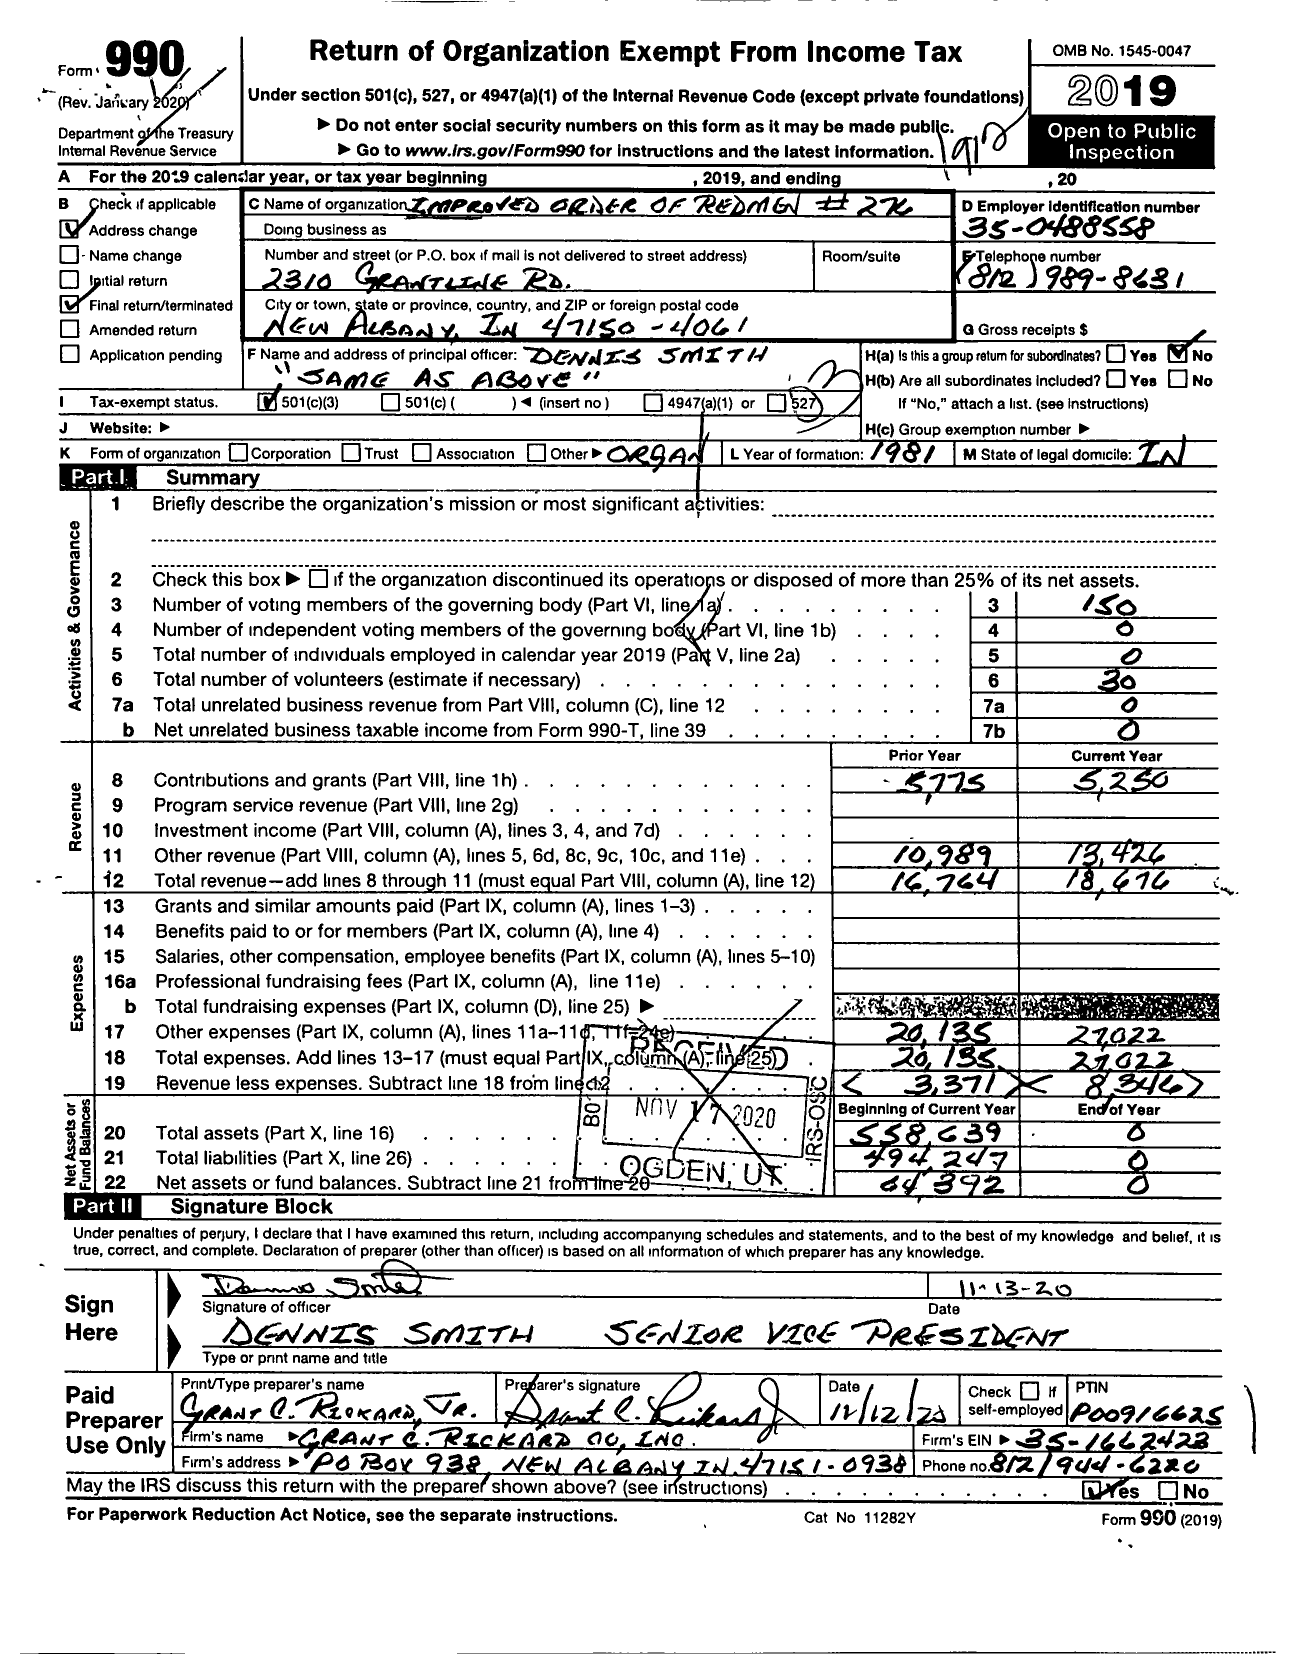 Form 990
Return of Organization Exempt From Income Tax
OMB No. 1545-0047
(Rev. January 2020)
2019
Under section 501(c), 527, or 4947(a)(1) of the Internal Revenue Code (except private foundations)
Department of the Treasury
Internal Revenue Service
▶ Do not enter social security numbers on this form as it may be made public.
▶ Go to www.irs.gov/Form990 for instructions and the latest information.
Open to Public
Inspection
A For the 2019 calendar year, or tax year beginning , 2019, and ending , 20
B Check if applicable
Address change
Name change
Initial return
Final return/terminated
Amended return
Application pending
C Name of organization IMPROVED ORDER OF REDMEN # 276
Doing business as
Number and street (or P.O. box if mail is not delivered to street address) Room/suite
2310 GRANTLINE RD.
City or town, state or province, country, and ZIP or foreign postal code
NEW ALBANY, IN 47150-4061
D Employer identification number
35-0488558
E Telephone number
(812) 989-8631
G Gross receipts $
F Name and address of principal officer: DENNIS SMITH
"SAME AS ABOVE"
H(a) Is this a group return for subordinates? Yes No
H(b) Are all subordinates included? Yes No
If "No," attach a list. (see instructions)
I Tax-exempt status. 501(c)(3) 501(c) ( ) ◀ (insert no ) 4947(a)(1) or 527
J Website: ▶
H(c) Group exemption number ▶
K Form of organization Corporation Trust Association Other ▶ ORGAN
L Year of formation: 1981
M State of legal domicile: IN
Part I Summary
Activities & Governance
1 Briefly describe the organization's mission or most significant activities:
2 Check this box ▶ if the organization discontinued its operations or disposed of more than 25% of its net assets.
3 Number of voting members of the governing body (Part VI, line 1a) 3 150
4 Number of independent voting members of the governing body (Part VI, line 1b) 4 0
5 Total number of individuals employed in calendar year 2019 (Part V, line 2a) 5 0
6 Total number of volunteers (estimate if necessary) 6 30
7a Total unrelated business revenue from Part VIII, column (C), line 12 7a 0
b Net unrelated business taxable income from Form 990-T, line 39 7b 0
Prior Year Current Year
Revenue
8 Contributions and grants (Part VIII, line 1h) 5,775 5,250
9 Program service revenue (Part VIII, line 2g)
10 Investment income (Part VIII, column (A), lines 3, 4, and 7d)
11 Other revenue (Part VIII, column (A), lines 5, 6d, 8c, 9c, 10c, and 11e) 10,989 13,426
12 Total revenue—add lines 8 through 11 (must equal Part VIII, column (A), line 12) 16,764 18,676
Expenses
13 Grants and similar amounts paid (Part IX, column (A), lines 1–3)
14 Benefits paid to or for members (Part IX, column (A), line 4)
15 Salaries, other compensation, employee benefits (Part IX, column (A), lines 5–10)
16a Professional fundraising fees (Part IX, column (A), line 11e)
b Total fundraising expenses (Part IX, column (D), line 25) ▶
17 Other expenses (Part IX, column (A), lines 11a–11d, 11f–24e) 20,135 27,022
18 Total expenses. Add lines 13–17 (must equal Part IX, column (A), line 25) 20,135 27,022
19 Revenue less expenses. Subtract line 18 from line 12 < 3,371 >< 8,346>
RECEIVED
NOV 17 2020
IRS-OSC
OGDEN, UT
Net Assets or Fund Balances
Beginning of Current Year End of Year
20 Total assets (Part X, line 16) 558,639 0
21 Total liabilities (Part X, line 26) 494,247 0
22 Net assets or fund balances. Subtract line 21 from line 20 64,392 0
Part II Signature Block
Under penalties of perjury, I declare that I have examined this return, including accompanying schedules and statements, and to the best of my knowledge and belief, it is
true, correct, and complete. Declaration of preparer (other than officer) is based on all information of which preparer has any knowledge.
Sign Here
Dennis Smith 11-13-20
Signature of officer Date
DENNIS SMITH SENIOR VICE PRESIDENT
Type or print name and title
Paid Preparer Use Only
Print/Type preparer's name Preparer's signature Date Check if self-employed PTIN
GRANT C. RICKARD, JR. Grant C. Rickard Jr 11/12/20 P00916625
Firm's name ▶ GRANT C. RICKARD CO, INC. Firm's EIN ▶ 35-1662423
Firm's address ▶ PO BOX 938, NEW ALBANY IN. 47151-0938 Phone no. 812/944-6220
May the IRS discuss this return with the preparer shown above? (see instructions) Yes No
For Paperwork Reduction Act Notice, see the separate instructions. Cat No 11282Y Form 990 (2019)